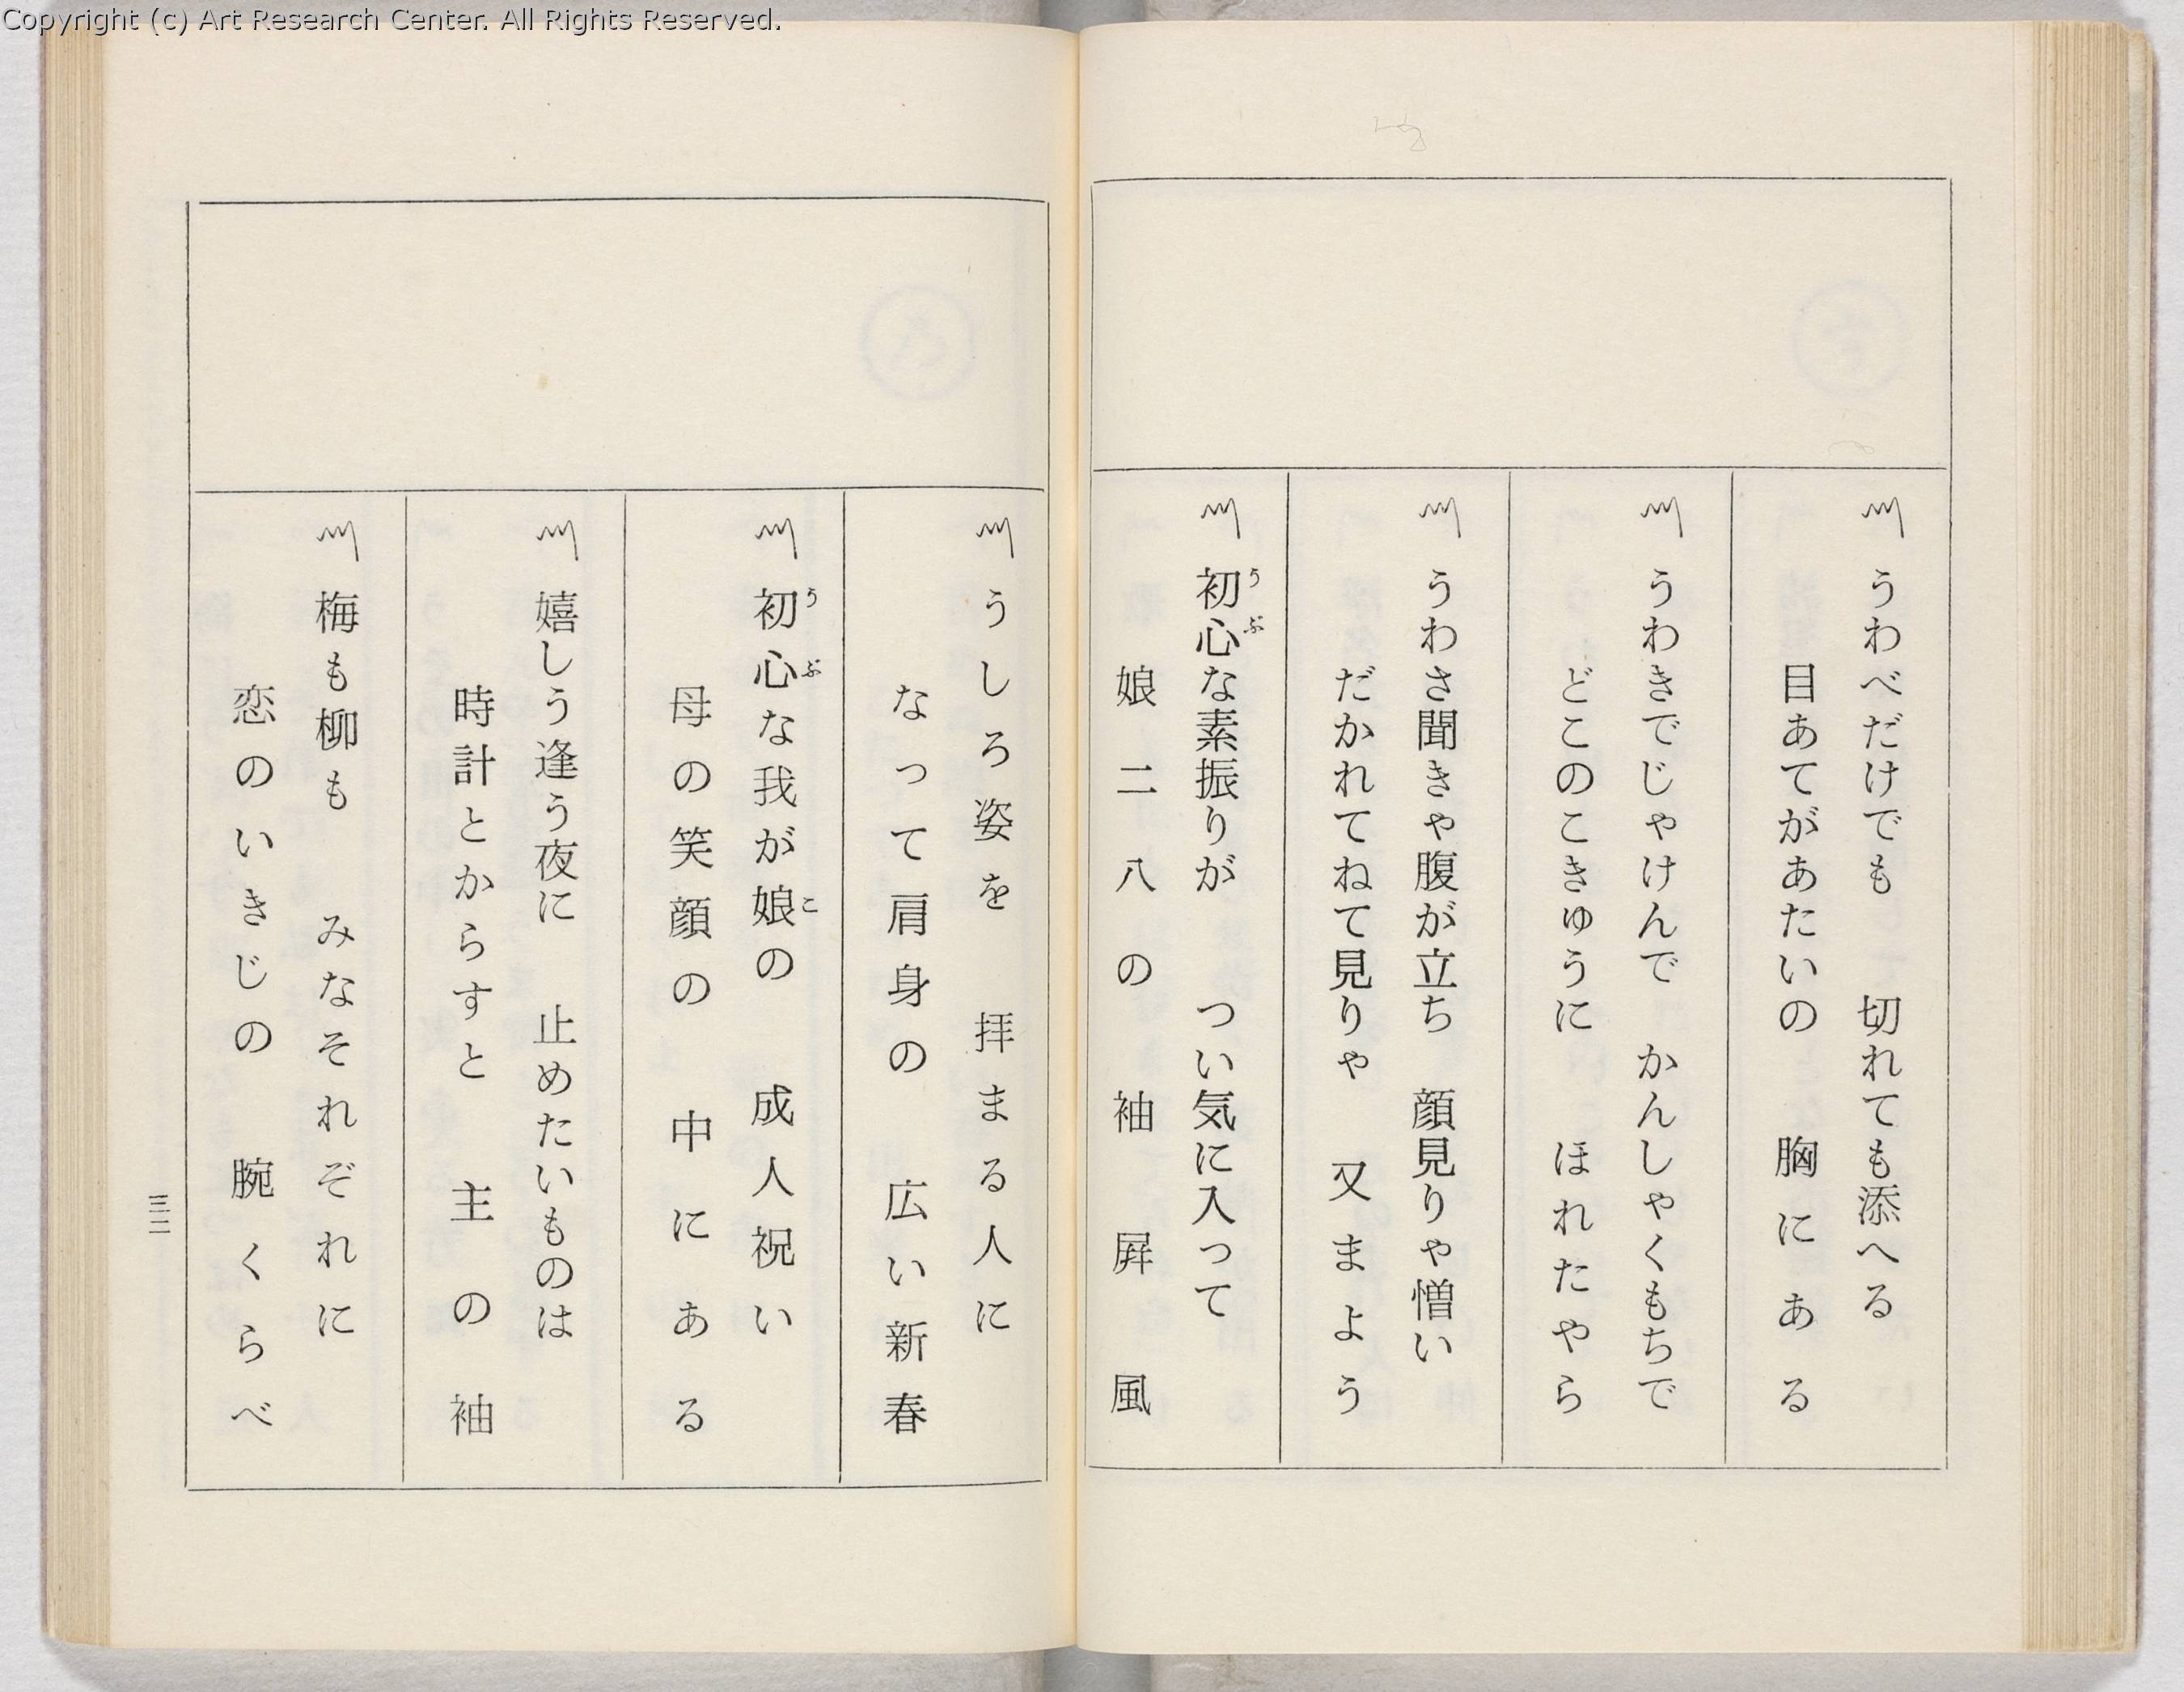 Copyright (c) Art Research Center. All Rights Reserved.
うわべだけでも　切れても添へる
目あてがあたいの　胸にある
うわきでじゃけんで　かんしゃくもちで
どこのこきゅうに　ほれたやら
うわさ聞きゃ腹が立ち　顔見りゃ憎い
だかれてねて見りゃ　又まよう
初心な素振りが　つい気に入って
うぶ
娘二八の　袖屏風
うしろ姿を　拝まる人に
なって肩身の　広い新春
初心な我が娘の　成人祝い
うぶ　こ
母の笑顔の　中にある
嬉しう逢う夜に　止めたいものは
時計とからすと　主の袖
梅も柳も　みなそれぞれに
恋のいきじの　腕くらべ
三二